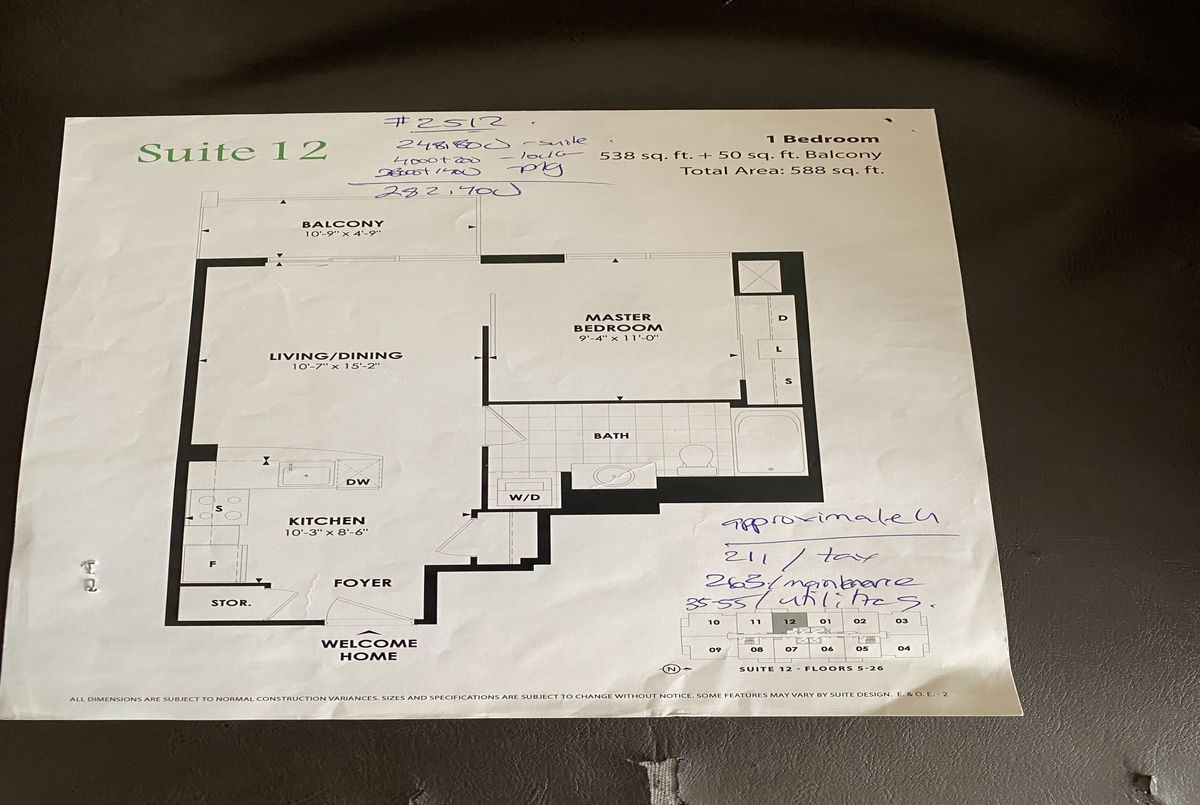 Suite 12
#2512
248,800 - suite
4000+200
282,700
1 Bedroom
538 sq. ft. + 50 sq. ft. Balcony
Total Area: 588 sq. ft.
BALCONY
10'-9" x 4'-9"
MASTER
BEDROOM
9'-4" x 11'-0"
D
L
S
LIVING/DINING
10'-7" x 15'-2"
BATH
W/D
DW
S
KITCHEN
10'-3" x 8'-6"
F
FOYER
STOR.
WELCOME
HOME
approximately
211 / tax
263/
35-55/ utilites.
10 11 12 01 02 03
09 08 07 06 05 04
N
SUITE 12 - FLOORS 5-26
ALL DIMENSIONS ARE SUBJECT TO NORMAL CONSTRUCTION VARIANCES. SIZES AND SPECIFICATIONS ARE SUBJECT TO CHANGE WITHOUT NOTICE. SOME FEATURES MAY VARY BY SUITE DESIGN. E. & O. E. - 2